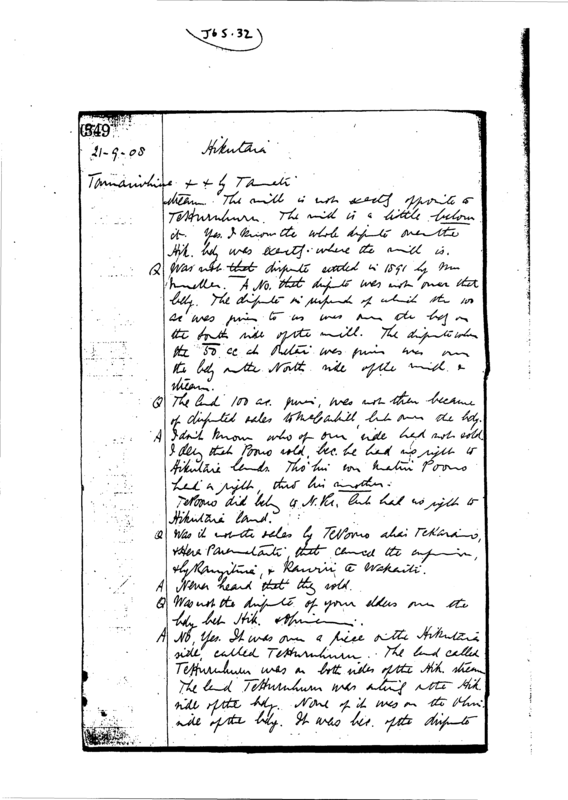 J65.32
349
21-9-08 Hikutaia
x x by Taneti
stream. The mill is not exactly opposite to
TeHuruhuru. The mill is a little below
it. Yes. I know the whole dispute over the
Hik. bdy was exactly where the mill is.
Q Was not that dispute settled in 1891 by Mr
Mueller. A No. that dispute was not over that
bdy. The dispute in respect of which the 100
ac was given to us was over the bdy on
the South side of the mill. The dispute when
the 50 ac at was given was over
the bdy on the North side of the mill &
stream.
Q The land 100 ac. given, was not then because
of disputed sales to McCaskill, but over the bdy.
A I don't know who of our side had not sold
I deny that Poono sold, bec. he had no right to
Hikutaia lands. Tho' his son Poono
had a right, thro' his mother.
TePoono did belg to N. but had no right to
Hikutaia land.
Q Was it not the sales by TePoono alias TeKaraino,
& Hera that caused the
& by & Rawiri te
A Never heard that they sold.
Q Was not the dispute of your elders over the
bdy bet Hik. &
A No, Yes. It was over a piece on the Hikutaia
side, called TeHuruhuru. The land called
TeHuruhuru was on both sides of the Hik stream
The land TeHuruhuru was on the Hik
side of the bdy. None of it was on the
side of the bdy. It was bec. of the dispute